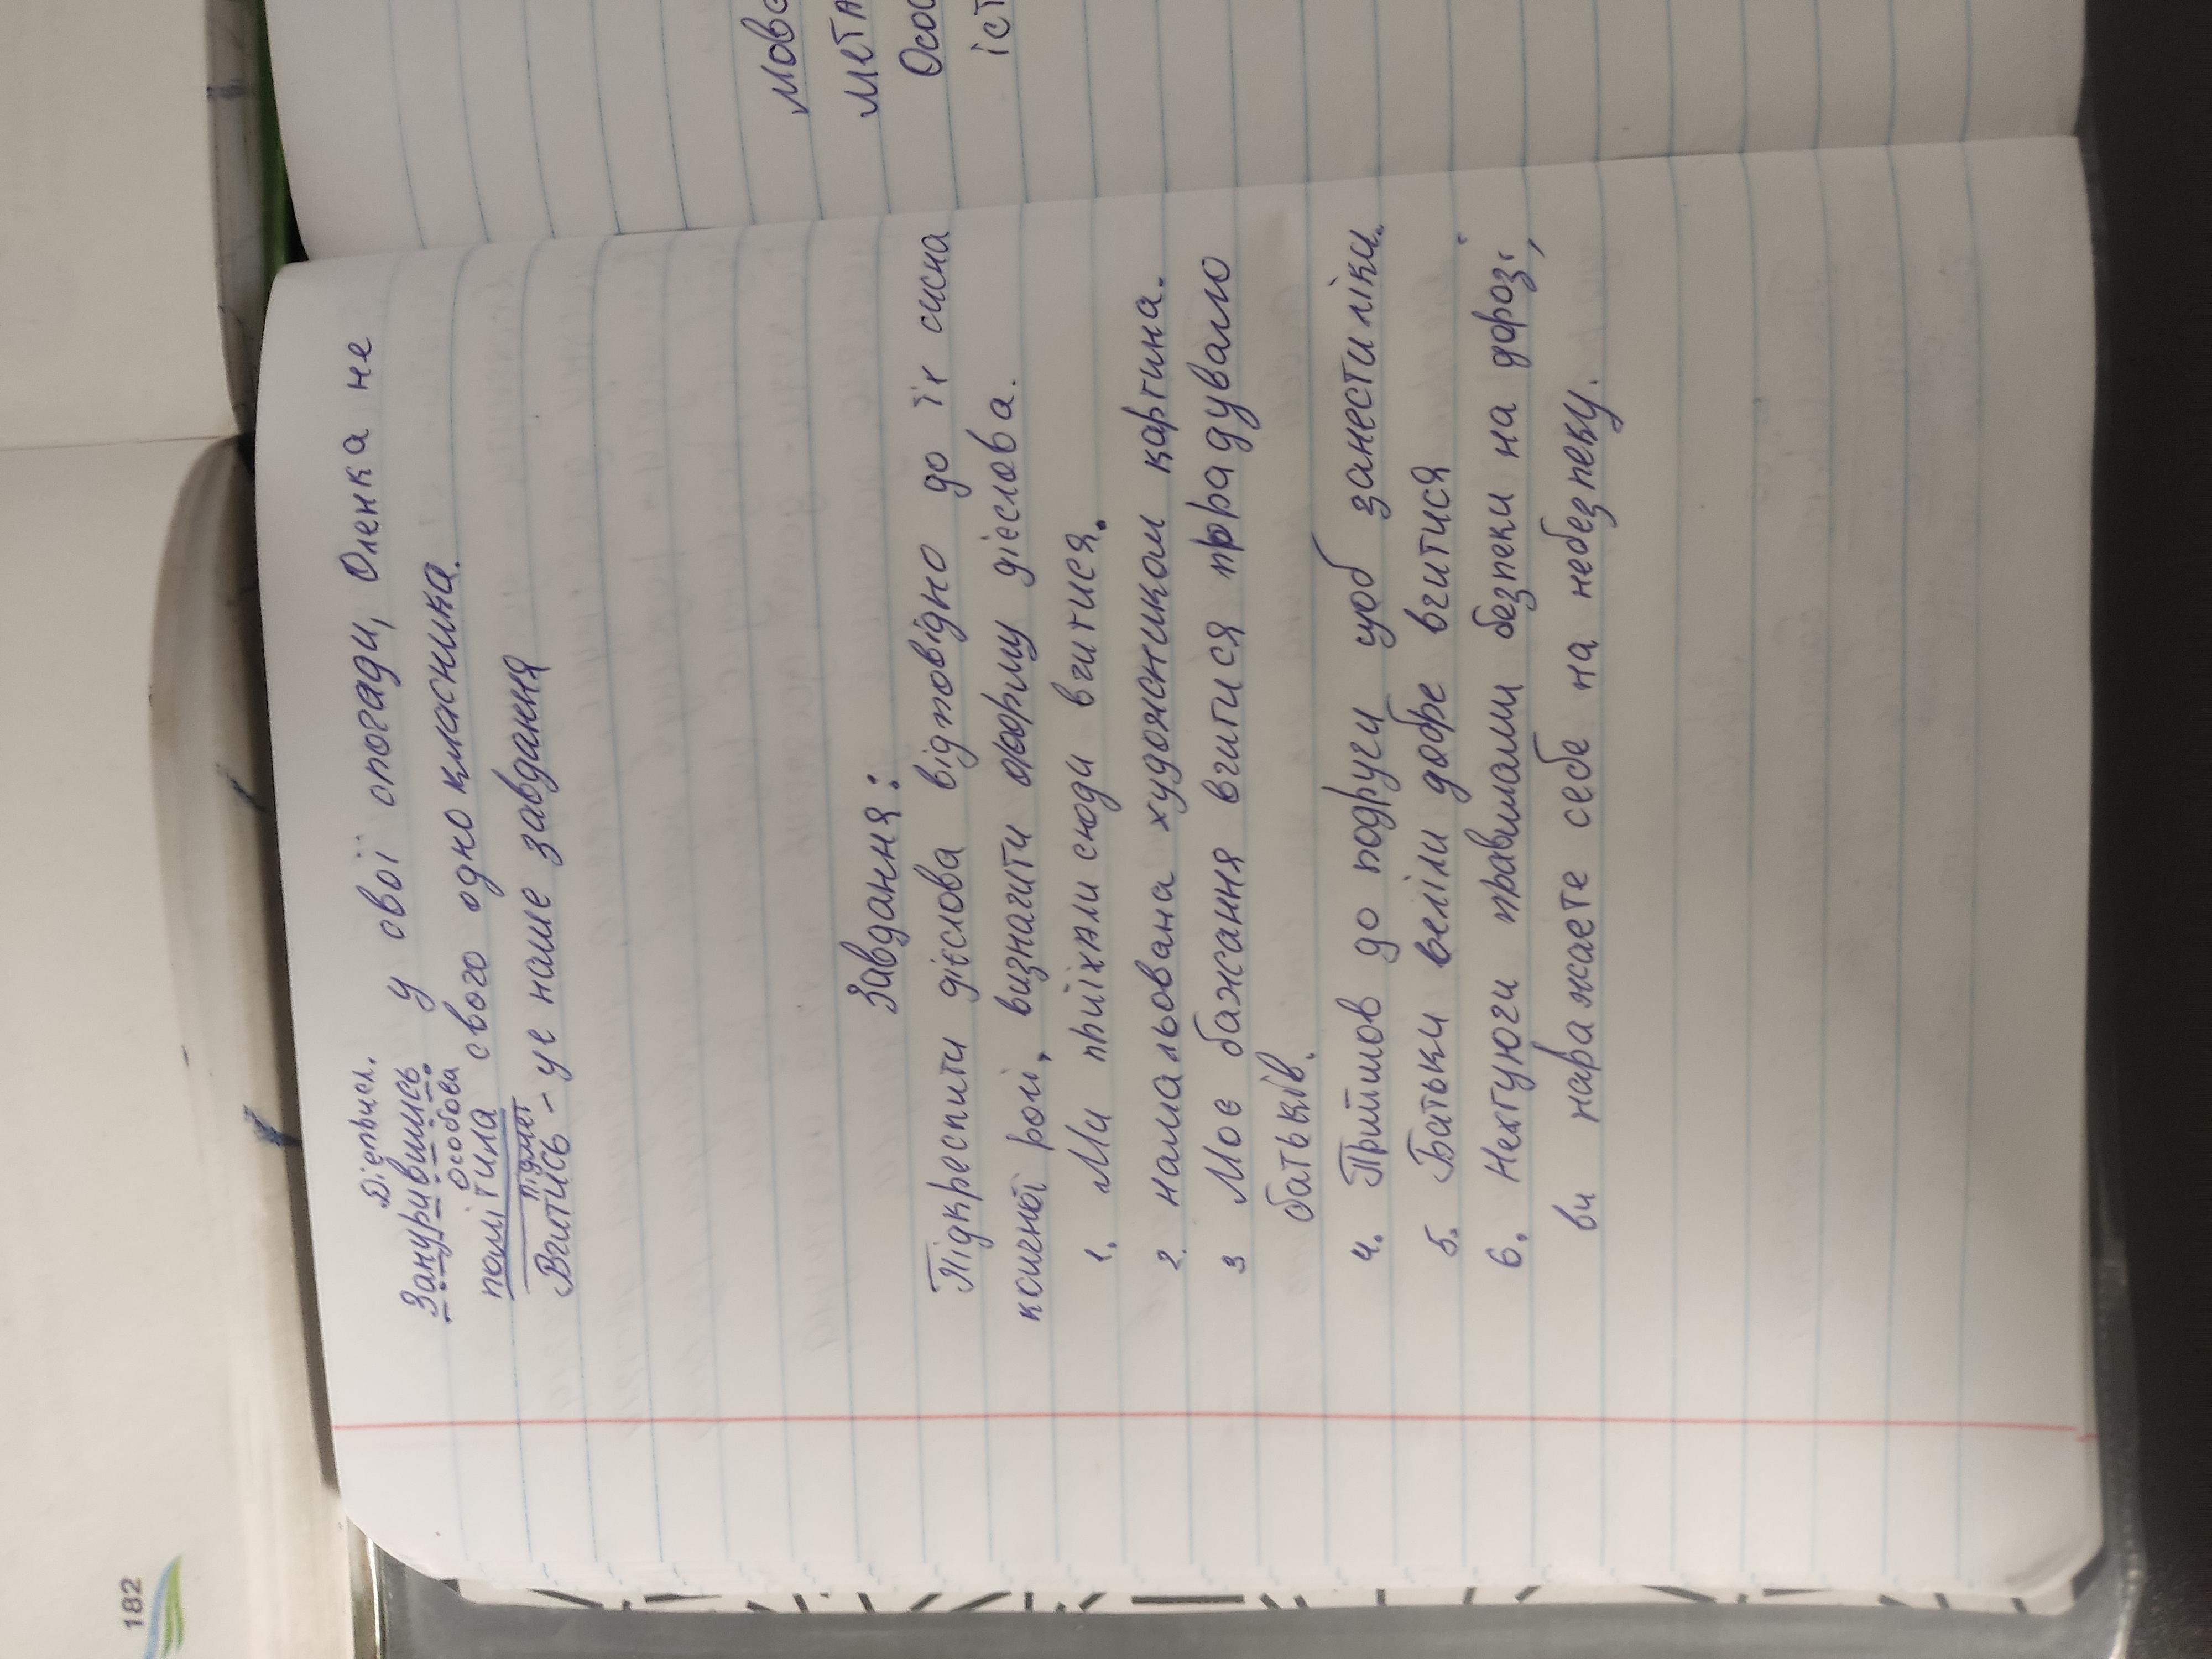 Дієприсл.
Занурившись у свої спогади, Оленка не
Особова
помітила свого однокласника.
Підмет
Вчитись - це наше завдання
Завдання:
Підкреспити дієслова відповідно до їх синта
ксичної ролі, визначити форму дієслова.
1. Ми приїхали сюди вчитися.
2. намальована художником картина.
3 Моє бажання вчитися прадувало
батьків.
4. Прийшов до подруги щоб занести ліки.
5. Батьки веліли добре вчитися
6. Нехтуючи правилами безпеки на дорозі,
ви наражаєте себе на небезпеку.
мов
мета
Осо
іст
182